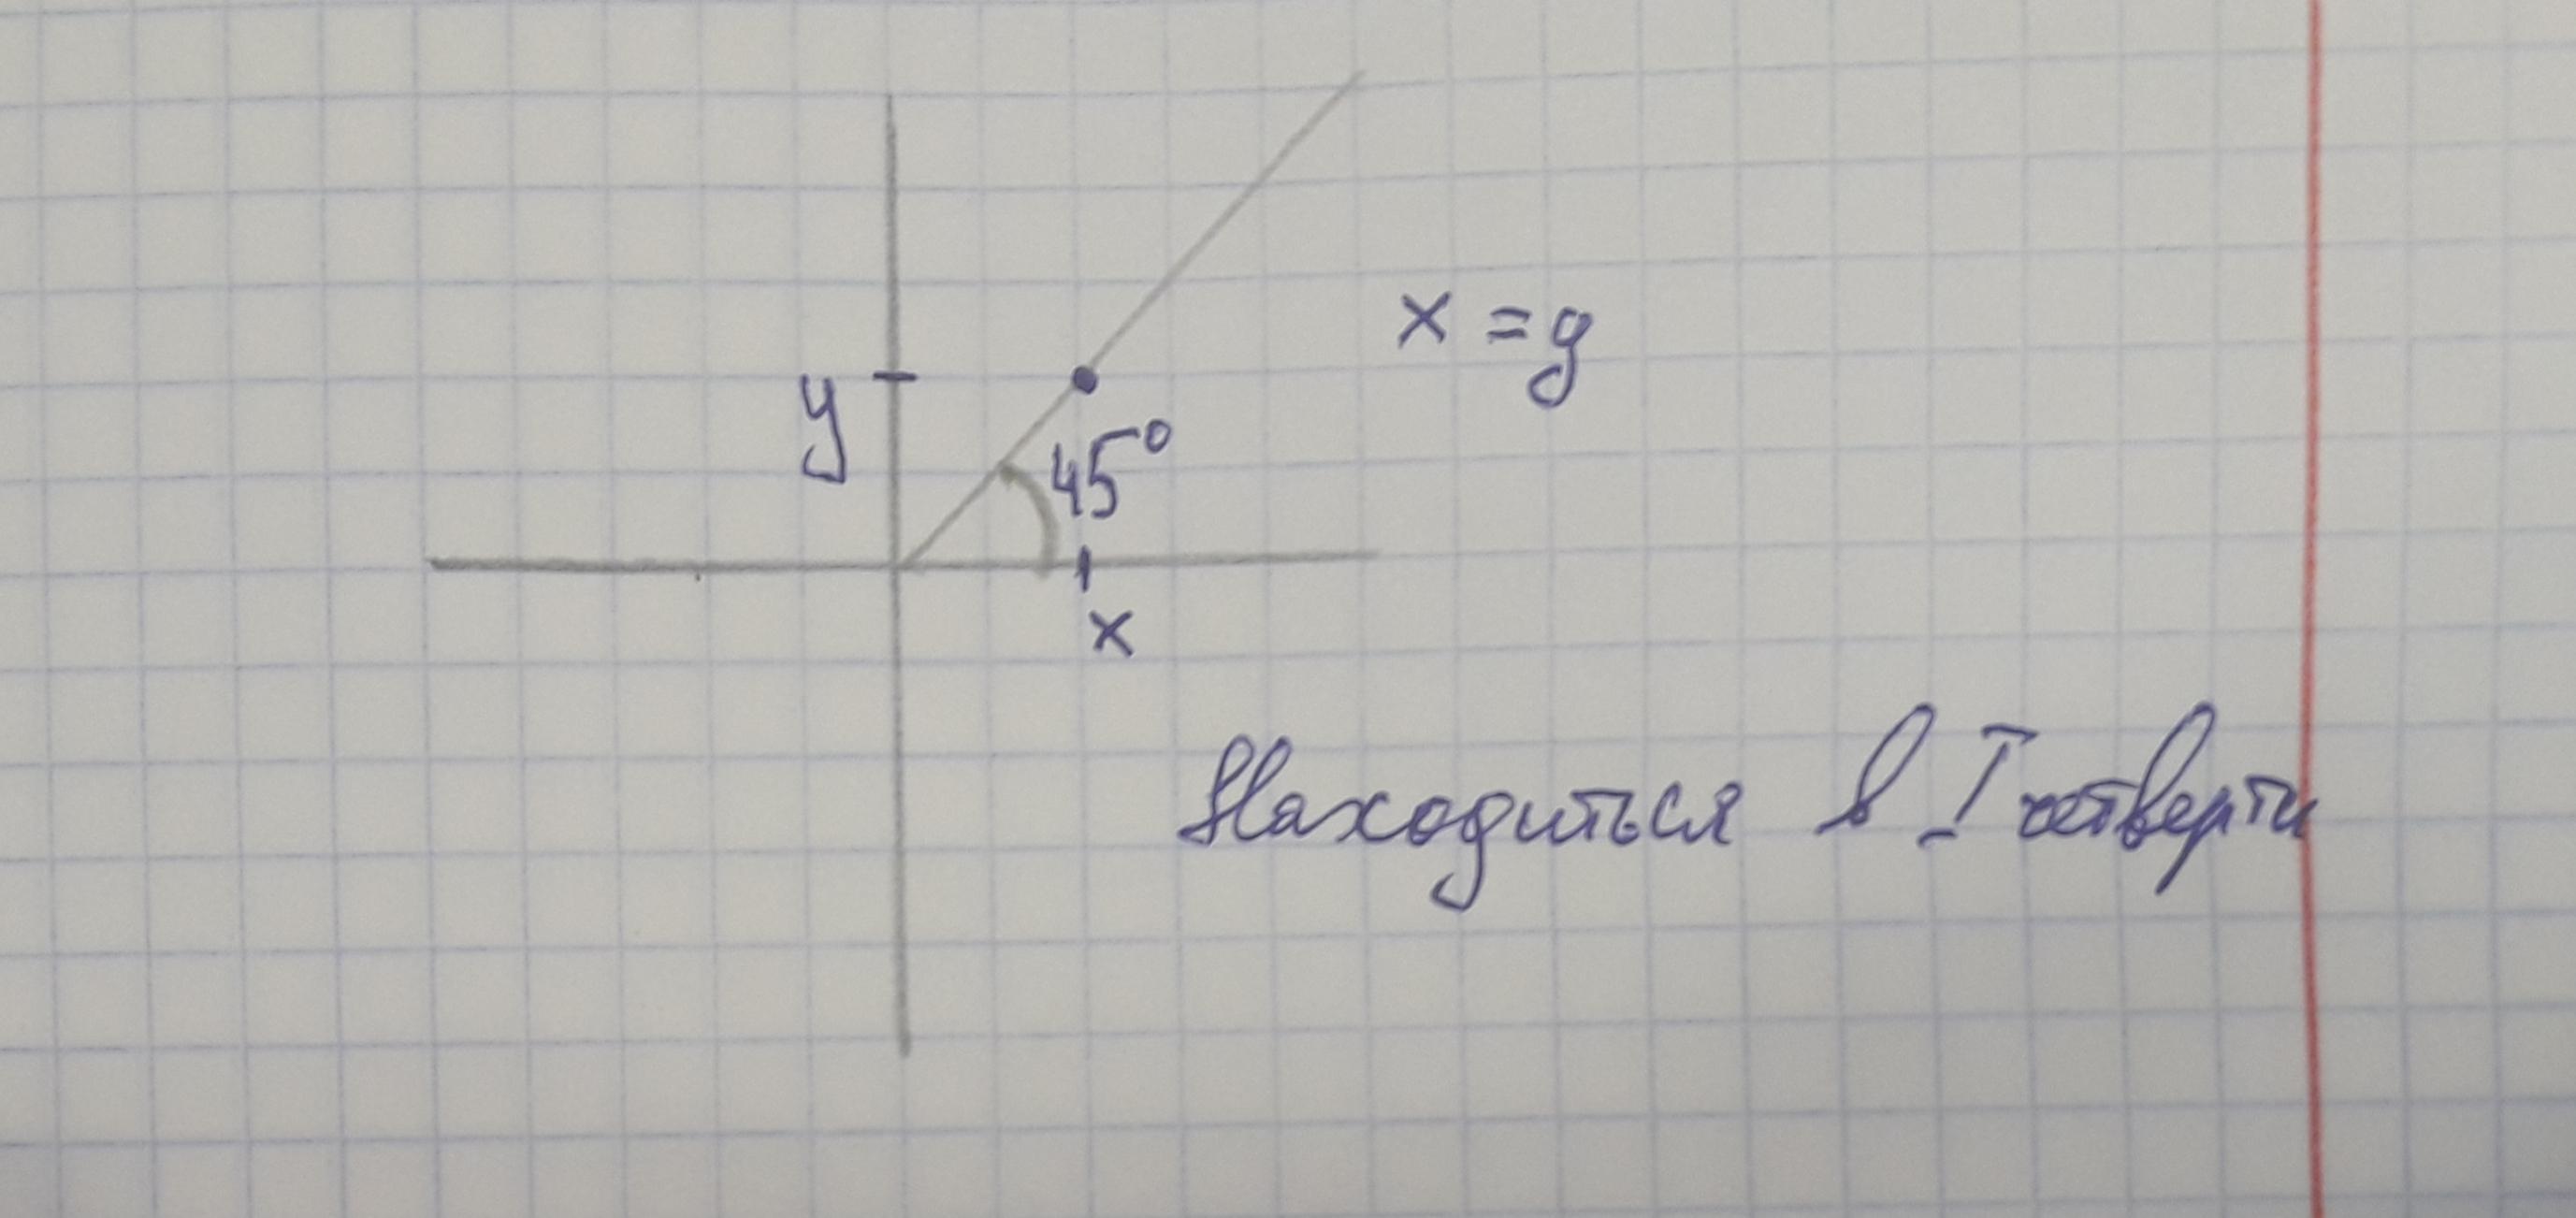 x = y
y
45°
x
Находиться в I четверти